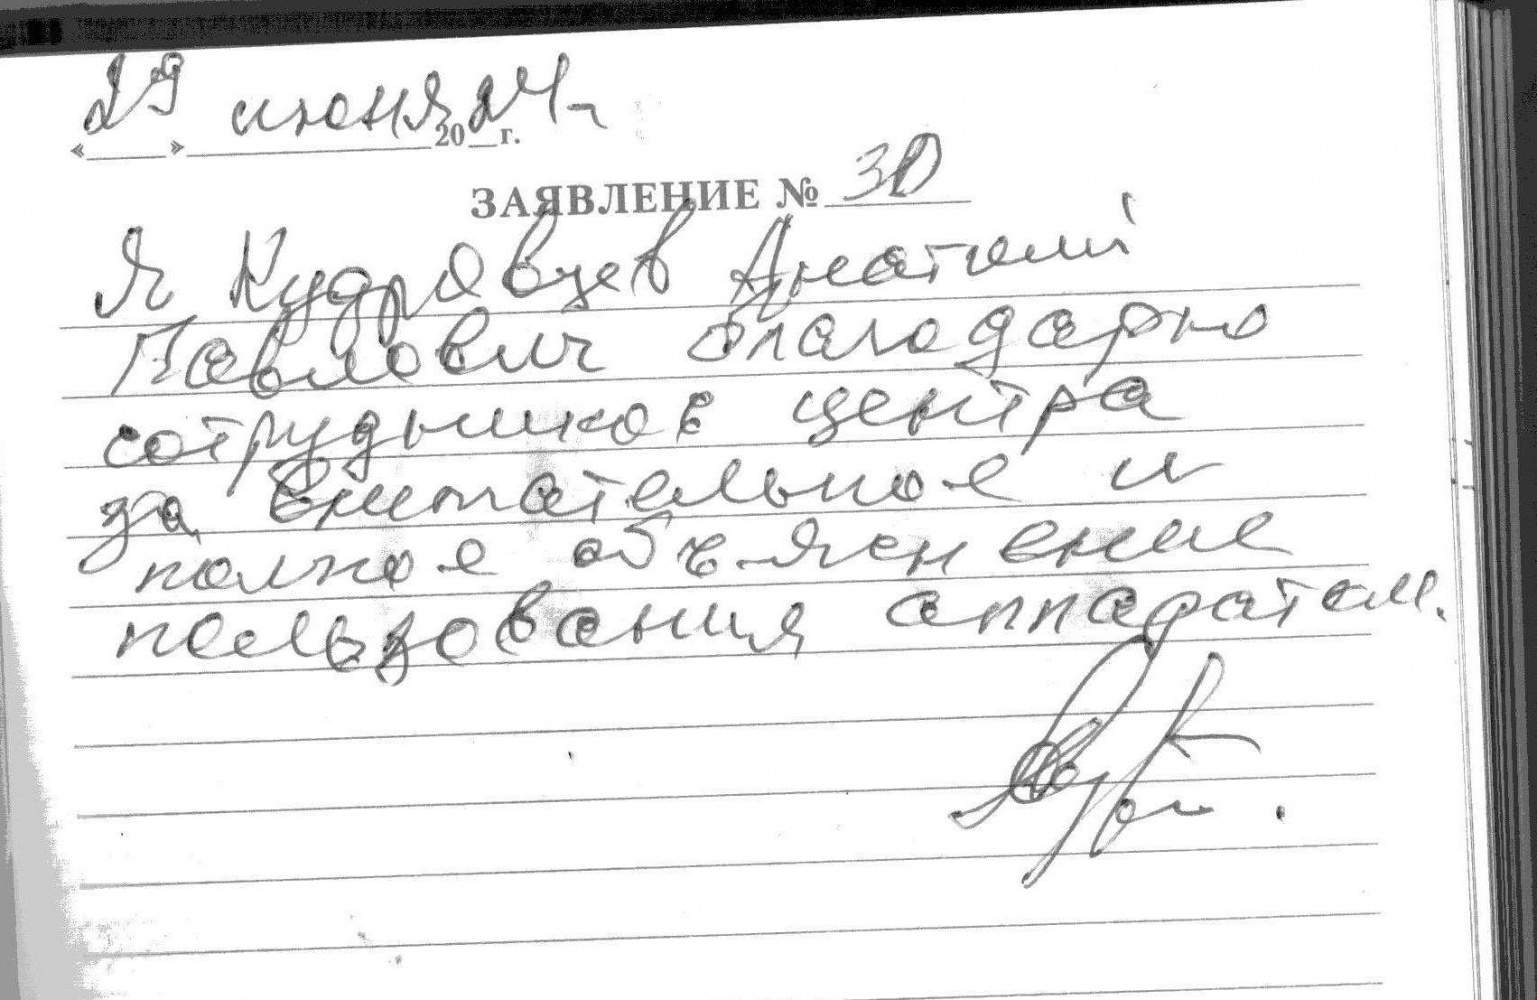 «29» июня 2024 г.
ЗАЯВЛЕНИЕ № 30
Я Кудрявцев Анатолий
Павлович благодарю
сотрудников центра
за внимательное и
полное объяснение
пользования аппаратом.